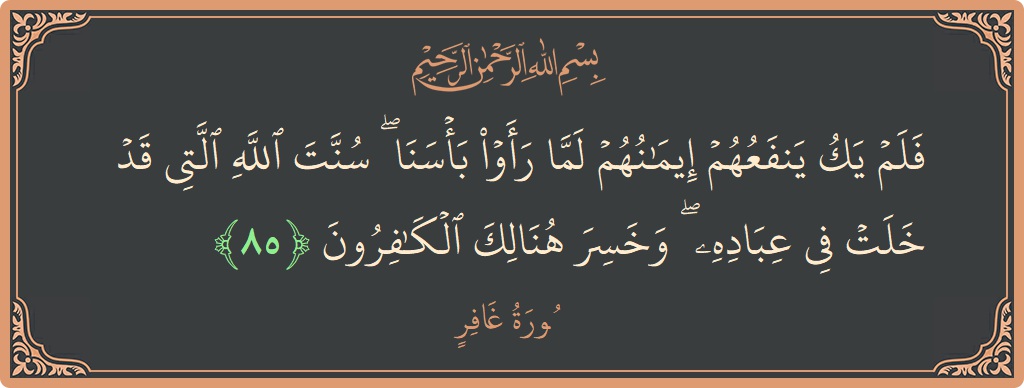 بِسْمِ اللهِ الرَّحْمٰنِ الرَّحِيْمِ
فَلَمۡ يَكُ يَنفَعُهُمۡ إِيمَٰنُهُمۡ لَمَّا رَأَوۡاْ بَأۡسَنَاۖ سُنَّتَ ٱللَّهِ ٱلَّتِي قَدۡ
خَلَتۡ فِي عِبَادِهِۦۖ وَخَسِرَ هُنَالِكَ ٱلۡكَٰفِرُونَ ﴿٨٥﴾
سُورَةُ غَافِرٍ